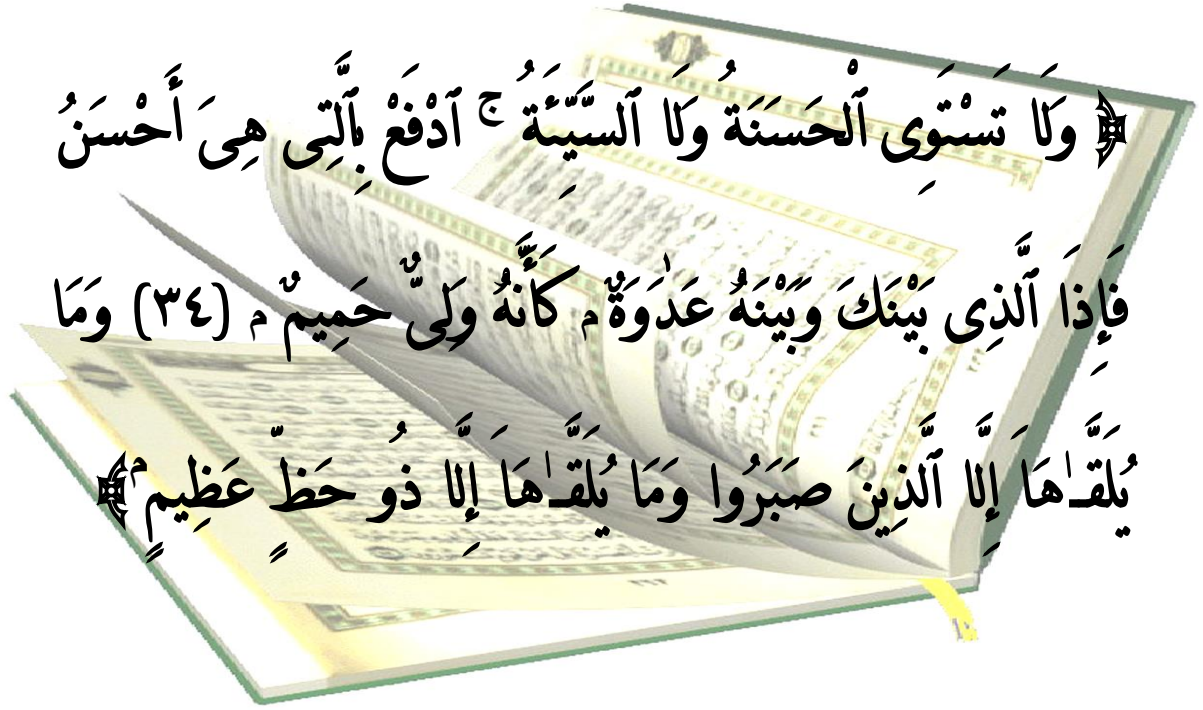 ﴿ وَلَا تَسْتَوِى ٱلْحَسَنَةُ وَلَا ٱلسَّيِّئَةُ ۚ ٱدْفَعْ بِٱلَّتِى هِىَ أَحْسَنُ
فَإِذَا ٱلَّذِى بَيْنَكَ وَبَيْنَهُ عَدَٰوَةٌ م كَأَنَّهُ وَلِىٌّ حَمِيمٌ م (٣٤) وَمَا
يُلَقَّـٰهَا إِلَّا ٱلَّذِينَ صَبَرُوا وَمَا يُلَقَّـٰهَا إِلَّا ذُو حَظٍّ عَظِيمٍۢ ﴾